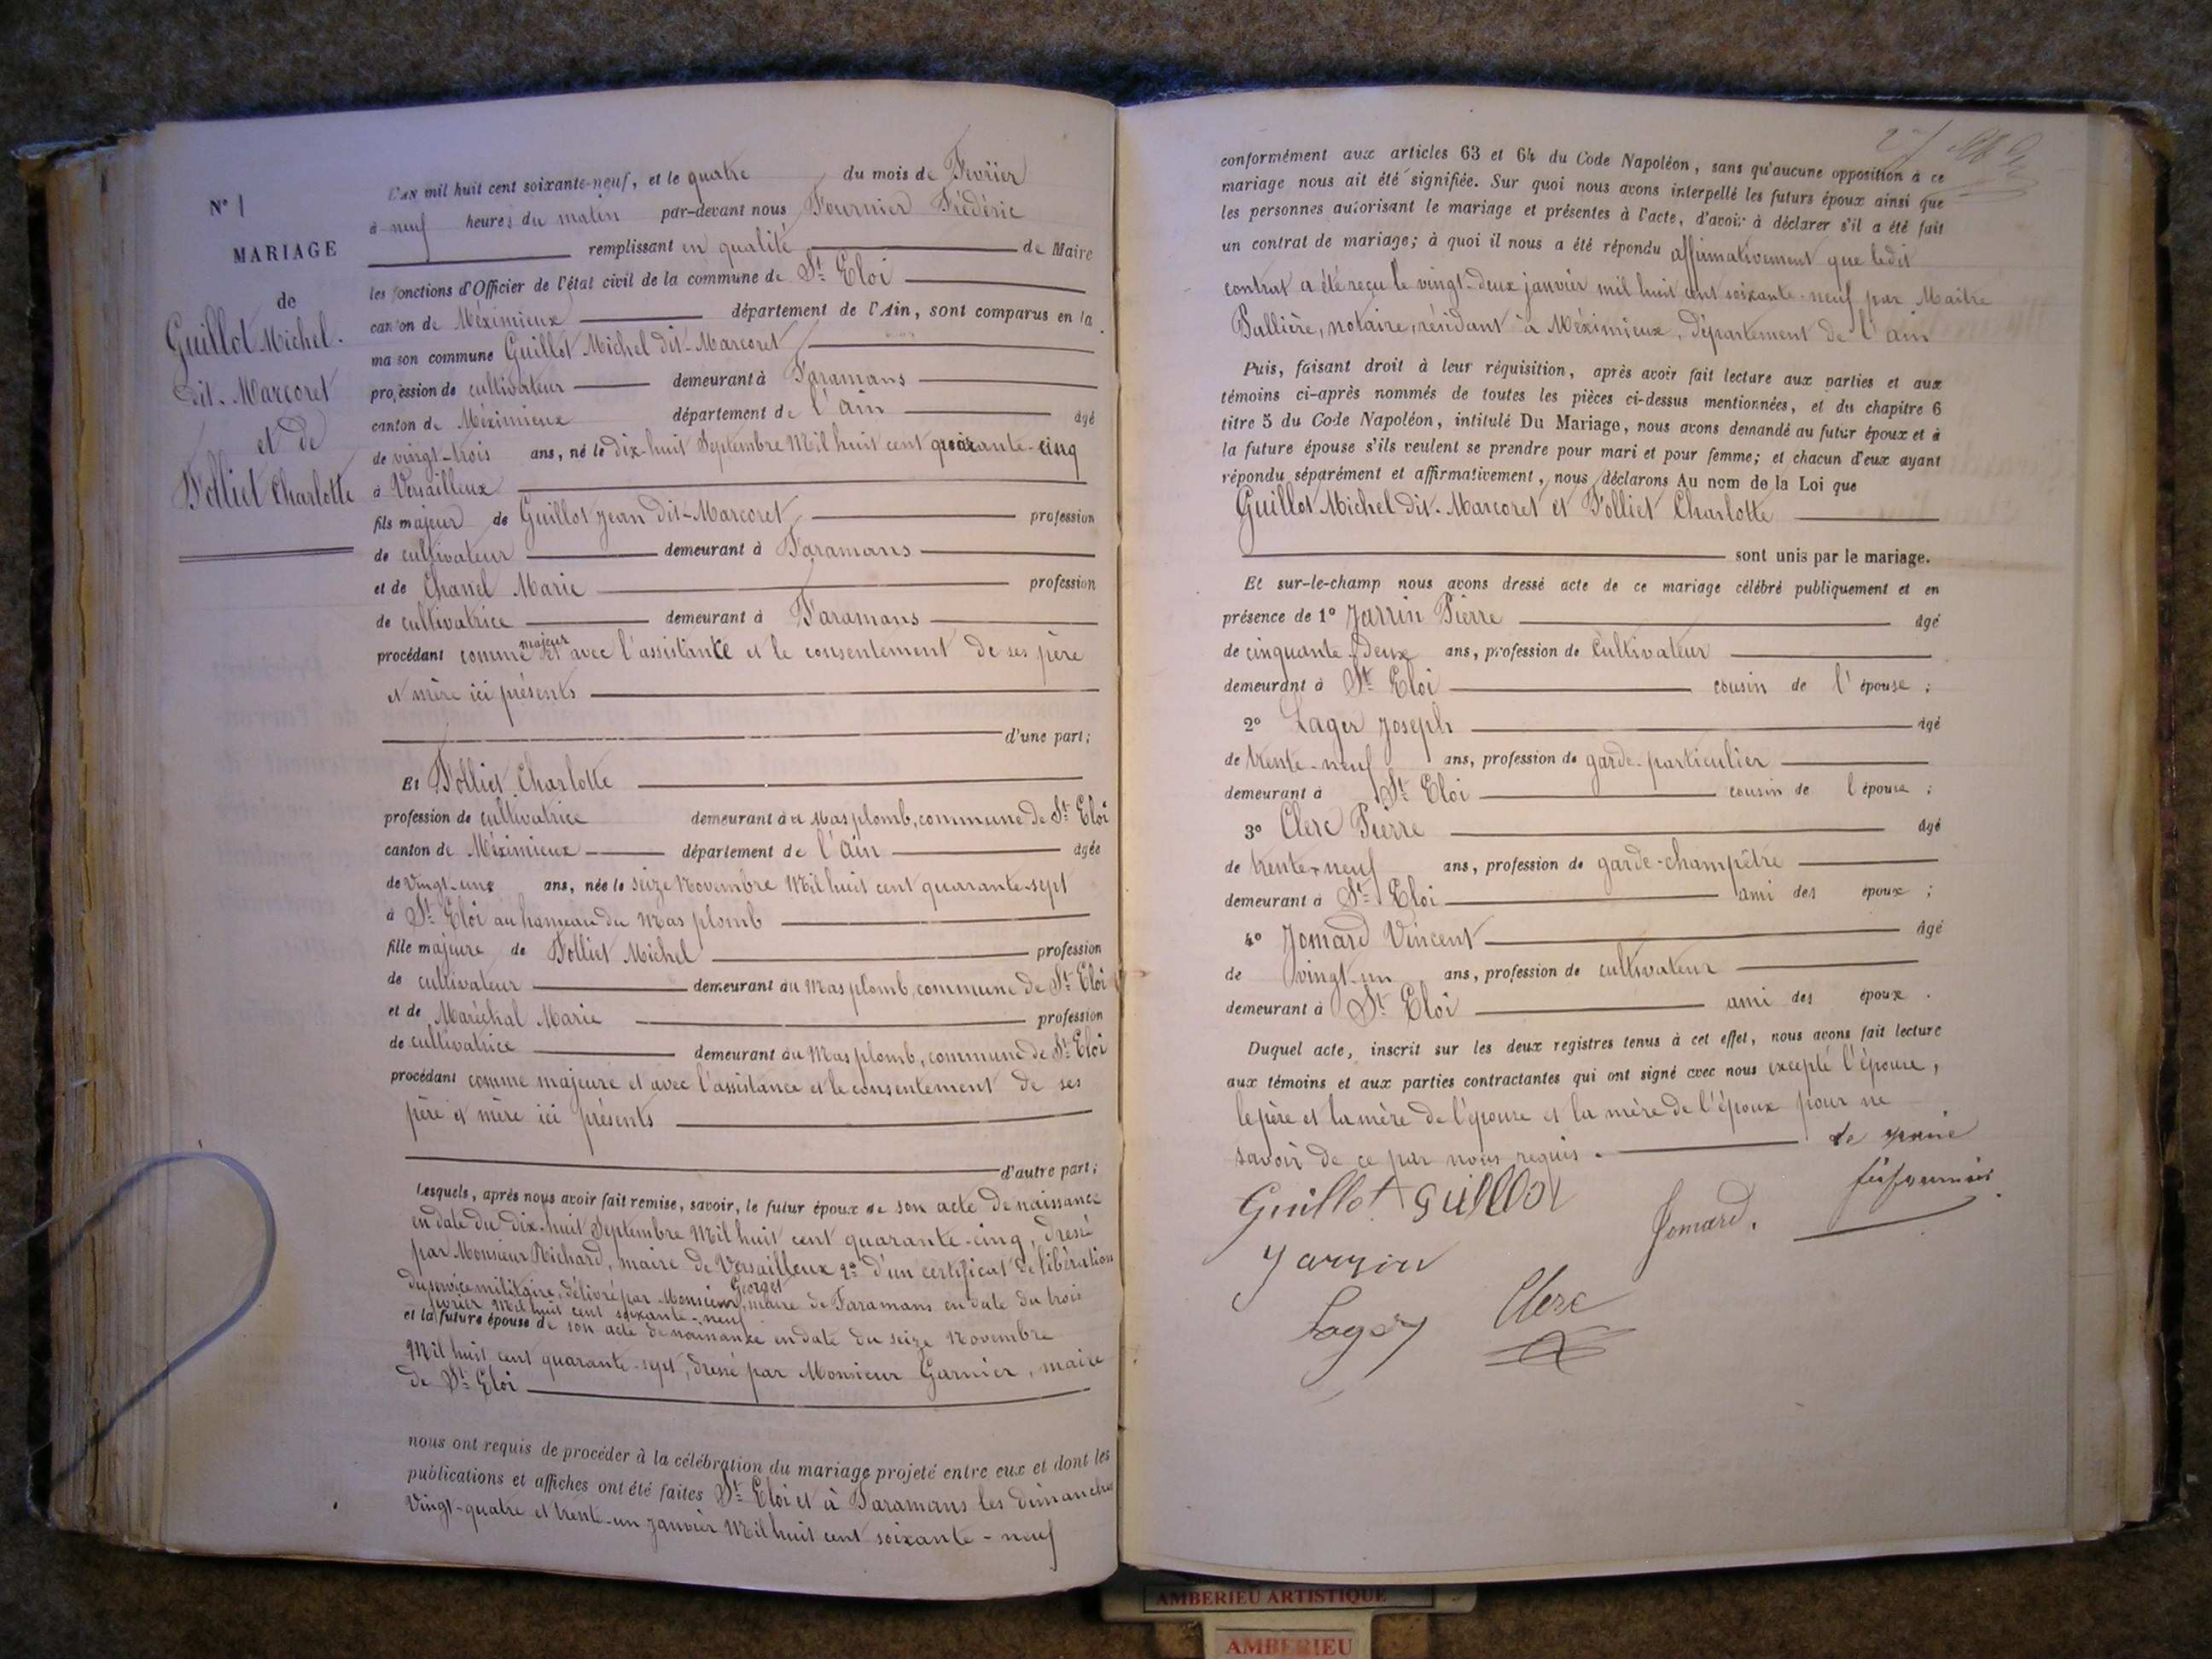 N° 1
MARIAGE
de
Guillot Michel.
dit-Marcoret
et de
Folliet Charlotte
L'AN mil huit cent soixante-neuf, et le quatre du mois de Fevrier
à neuf heures du matin par-devant nous Fournier Frédéric
remplissant en qualité de Maire
les fonctions d'Officier de l'état civil de la commune de St Eloi
canton de Méximieux département de l'Ain, sont comparus en la
maison commune Guillot Michel dit-Marcoret
profession de cultivateur demeurant à Faramans
canton de Méximieux département de l'Ain âgé
de vingt-trois ans, né le dix-huit Septembre Mil huit cent quarante-cinq
à Versailleux
fils majeur de Guillot Jean dit-Marcoret profession
de cultivateur demeurant à Faramans
et de Chanel Marie profession
de cultivatrice demeurant à Faramans
procédant comme majeur et avec l'assistance et le consentement de ses père
et mère ici présents
d'une part;
Et Folliet Charlotte
profession de cultivatrice demeurant au Mas plomb, commune de St Eloi
canton de Méximieux département de l'Ain âgée
de vingt-une ans, née le seize Novembre Mil huit cent quarante-sept
à St Eloi au hameau du Mas plomb
fille majeure de Folliet Michel profession
de cultivateur demeurant au Mas plomb, commune de St Eloi
et de Maréchal Marie profession
de cultivatrice demeurant au Mas plomb, commune de St Eloi
procédant comme majeure et avec l'assistance et le consentement de ses
père et mère ici présents
d'autre part;
Lesquels, après nous avoir fait remise, savoir, le futur époux de son acte de naissance
en date du dix-huit Septembre Mil huit cent quarante-cinq, dressé
par Monsieur Richard, maire de Versailleux 2° d'un certificat de libération
du service militaire, délivré par Monsieur Georges, maire de Faramans en date du trois
février Mil huit cent soixante-neuf
et la future épouse de son acte de naissance en date du seize Novembre
Mil huit cent quarante-sept, dressé par Monsieur Garnier, maire
de St Eloi
nous ont requis de procéder à la célébration du mariage projeté entre eux et dont les
publications et affiches ont été faites St Eloi et à Faramans les dimanches
vingt-quatre et trente-un janvier Mil huit cent soixante-neuf
conformément aux articles 63 et 64 du Code Napoléon, sans qu'aucune opposition à ce
mariage nous ait été signifiée. Sur quoi nous avons interpellé les futurs époux ainsi que
les personnes autorisant le mariage et présentes à l'acte, d'avoir à déclarer s'il a été fait
un contrat de mariage; à quoi il nous a été répondu affirmativement que ledit
contrat a été reçu le vingt-deux janvier mil huit cent soixante-neuf par Maitre
Pallière, notaire, résidant à Méximieux, département de l'ain
Puis, faisant droit à leur réquisition, après avoir fait lecture aux parties et aux
témoins ci-après nommés de toutes les pièces ci-dessus mentionnées, et du chapitre 6
titre 5 du Code Napoléon, intitulé Du Mariage, nous avons demandé au futur époux et à
la future épouse s'ils veulent se prendre pour mari et pour femme; et chacun d'eux ayant
répondu séparément et affirmativement, nous déclarons Au nom de la Loi que
Guillot Michel dit-Marcoret et Folliet Charlotte
sont unis par le mariage.
Et sur-le-champ nous avons dressé acte de ce mariage célébré publiquement et en
présence de 1° Jarrin Pierre âgé
de cinquante-deux ans, profession de Cultivateur
demeurant à St Eloi cousin de l'épouse;
2° Lager Joseph âgé
de trente-neuf ans, profession de garde-particulier
demeurant à St Eloi cousin de l'épouse;
3° Clerc Pierre âgé
de trente-neuf ans, profession de garde-champêtre
demeurant à St Eloi ami des époux;
4° Jomard Vincent âgé
de vingt-un ans, profession de cultivateur
demeurant à St Eloi ami des époux.
Duquel acte, inscrit sur les deux registres tenus à cet effet, nous avons fait lecture
aux témoins et aux parties contractantes qui ont signé avec nous excepté l'épouse,
le père et la mère de l'épouse et la mère de l'époux pour ne
savoir de ce par nous requis.
Guillot Guillot
Jomard.
Jarrin
Lager Clerc
AMBERIEU ARTISTIQUE
AMBERIEU